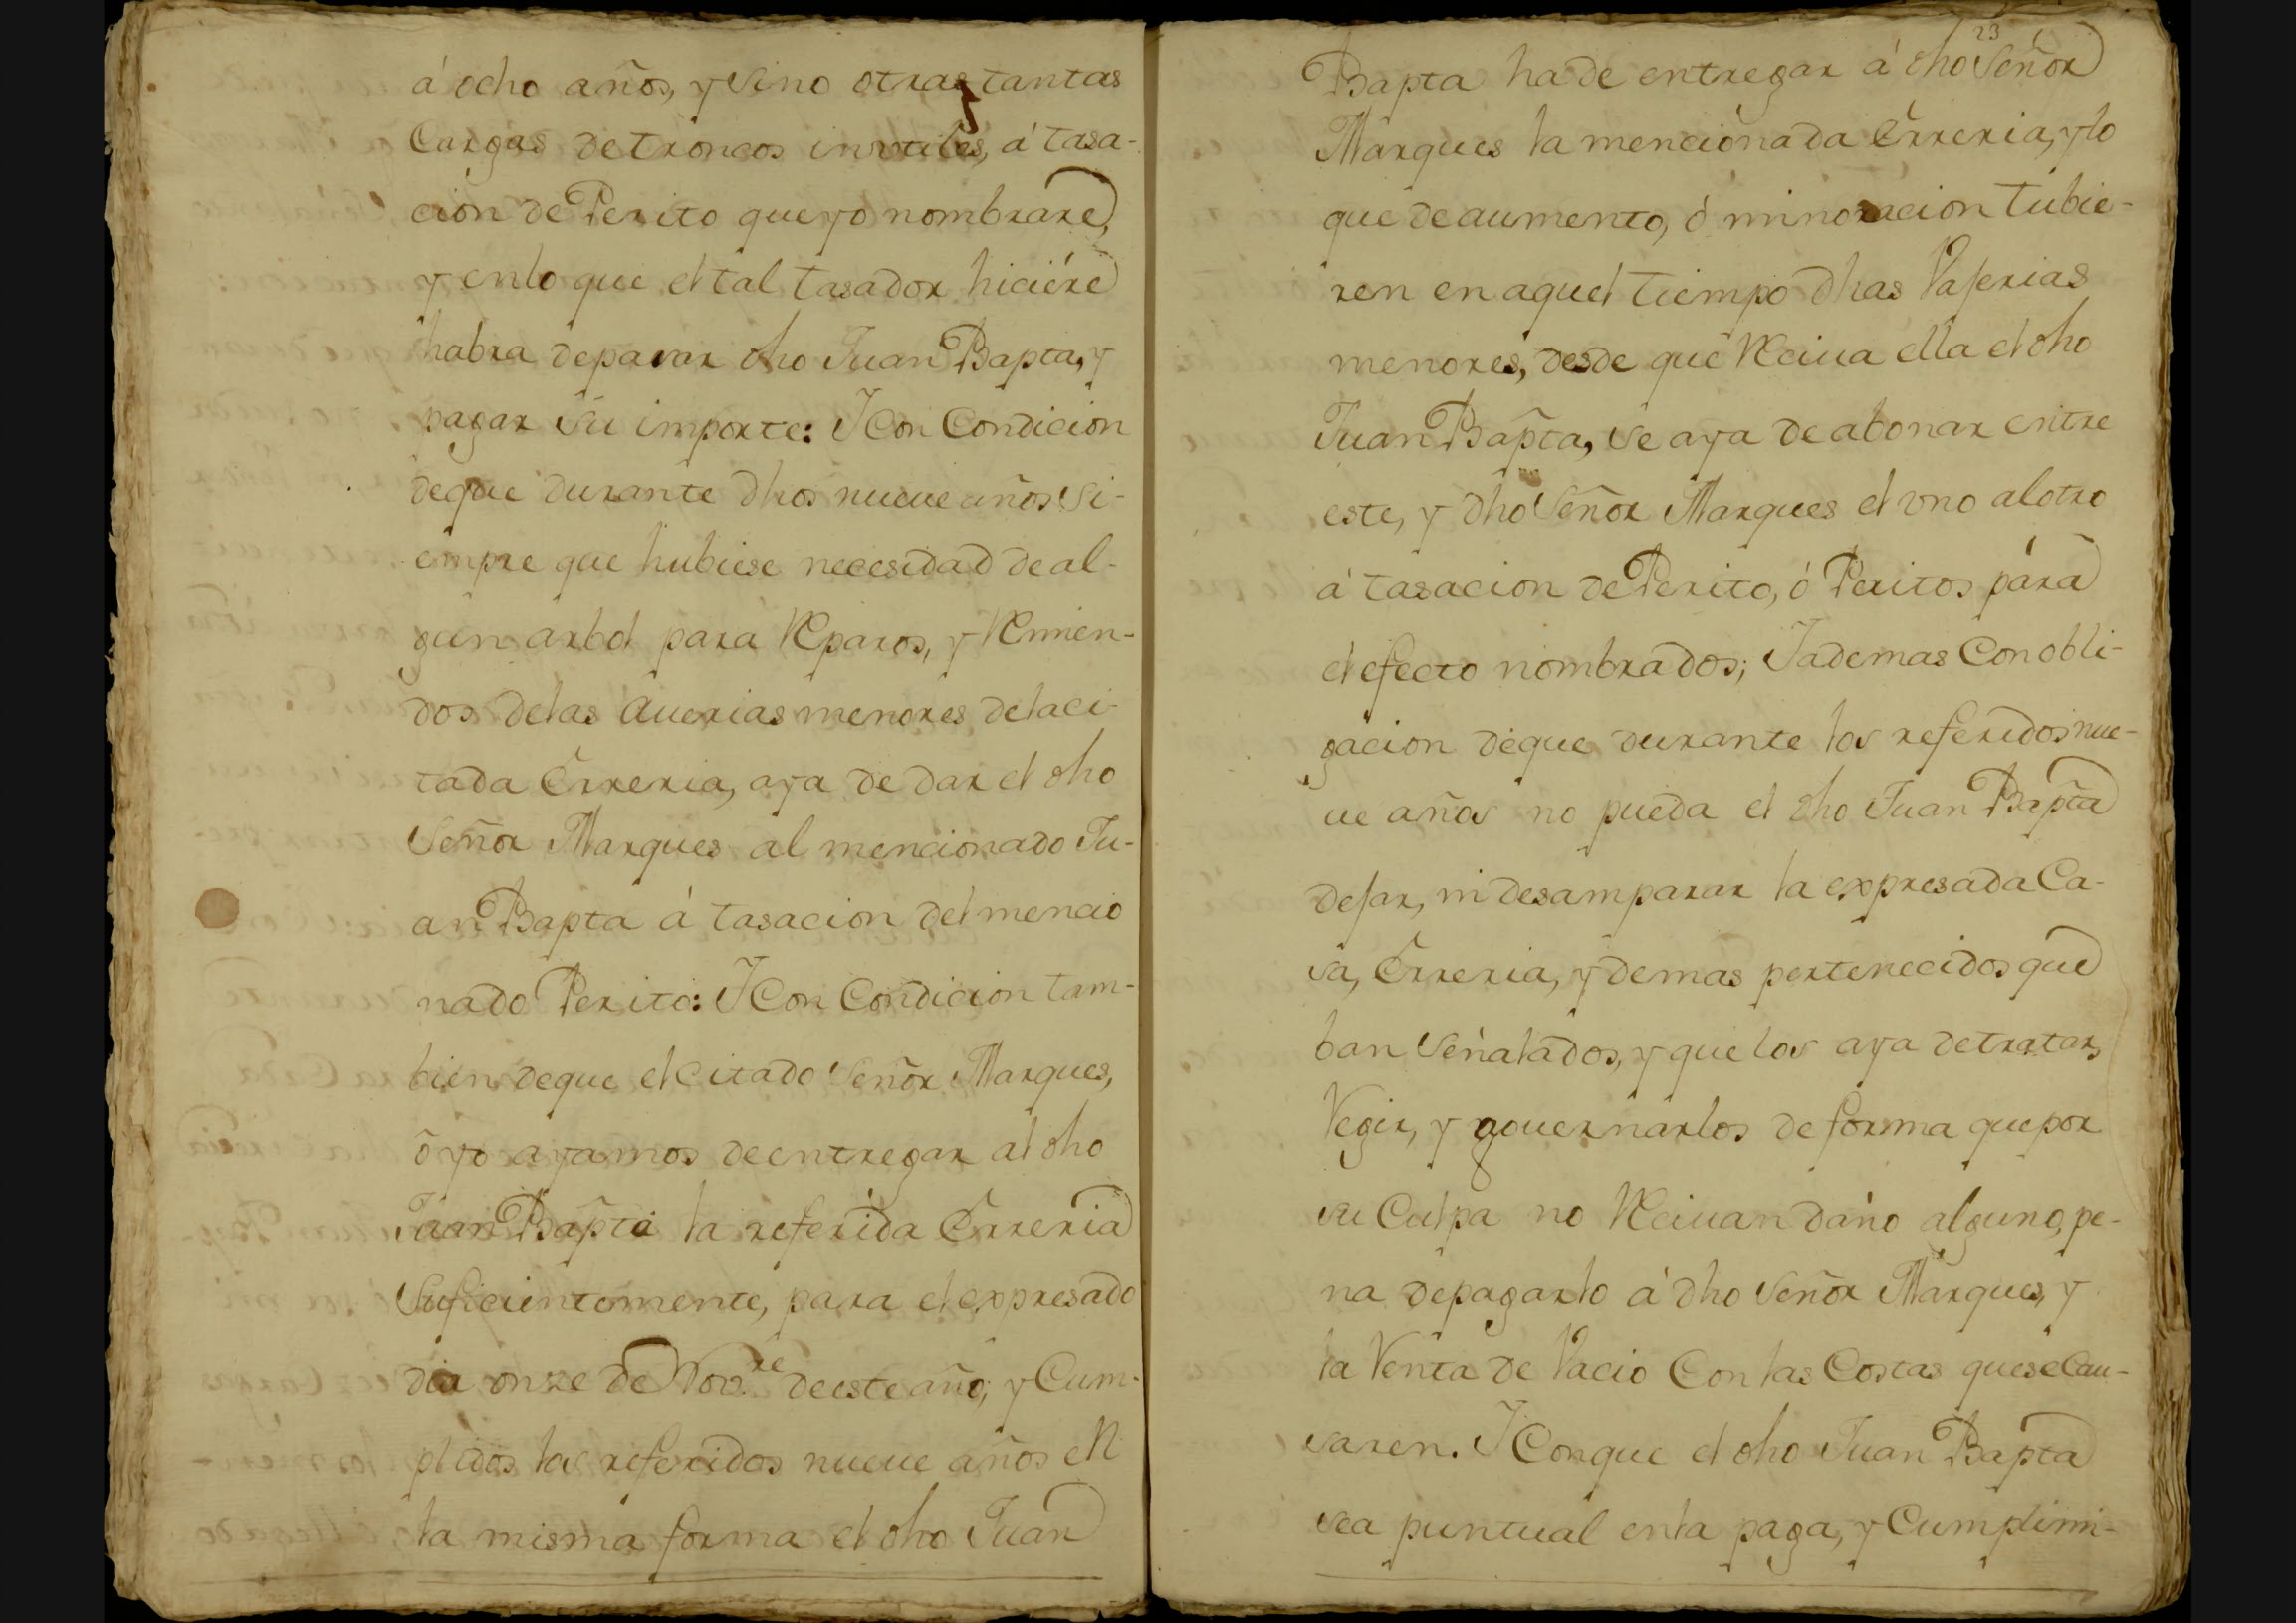 á ocho años, y Sino otras tantas
Cargas de troncos inutiles, á tasa-
cion de Perito que yo nombrare,
y en lo que el tal tasador hiciére
habra de parar dho Juan Bapta, y
pagar su importe: I Con Condicion
de que durante dhos nueue años si-
empre que hubiese necesidad de al-
gun arbol para Reparos, y Remien-
dos de las Auerias menores de la ci-
tada Errreria, aya de dar el dho
Señor Marques al mencionado Ju-
an Bapta á tasacion del mencio
nado Perito: I Con Condicion tam-
bien de que el citado Señor Marques,
ó yo ayamos de entregar al dho
Juan Bapta la referida Errreria
Suficientemente, para el expresado
dia onze de Nov.re de este año; y Cum-
plidos los referidos nueue años en
la misma forma el dho Juan
23
Bapta ha de entregar á dho Señor
Marques la mencionada Errreria, y lo
que de aumento, ó minoracion tubie-
ren en aquel tiempo dhas Vaserias
menores, desde que Reciua ella el dho
Juan Bapta, se aya de abonar entre
este, y dho Señor Marques el vno al otro
á tasacion de Perito, ó Peritos para
el efecto nombrados; I ademas Con obli-
gacion de que durante los referidos nue-
ue años no pueda el dho Juan Bapta
dejar, ni desamparar la expresada Ca-
sa, Errreria, y demas pertenecidos que
ban Señalados, y que los aya de tratar,
Regir, y gouernarlos de forma que por
su Culpa no Reciuan daño alguno, pe-
na de pagarlo á dho Señor Marques, y
la Renta de Vacio Con las Costas que se Cau-
saren. I Con que el dho Juan Bapta
sea puntual en la paga, y Cumplimi-